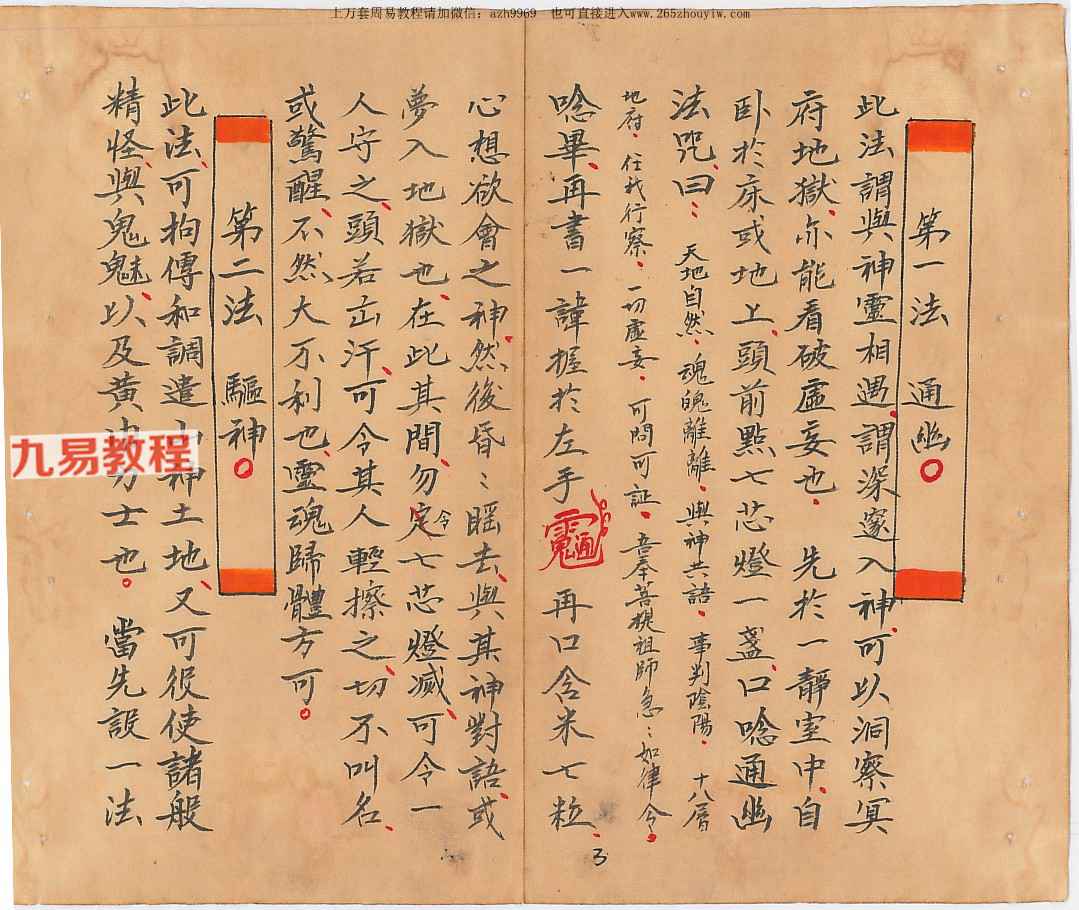 上万套周易教程请加微信：azh9969 也可直接进入www.265zhouyiw.com
第一法 通幽
此法謂與神靈相遇、謂深邃入神、可以洞察冥
府地獄、亦能看破虛妄也、先於一靜室中、自
卧於床或地上、頭前點七芯燈一盞、口唸通幽
法咒、曰： 天地自然、魂魄離離、與神共語、事判陰陽、十八層
地府、任我行察、一切虛妄、可問可証、吾奉菩提祖師急：如律令。
唸畢、再書一諱握於左手 再口含米七粒、
心想欲會之神、然後昏：睡去、與其神對語、或
夢入地獄也、在此其間、勿令七芯燈滅、可令一
人守之、頭若出汗、可令其人輕擦之、切不叫名、
或驚醒、不然大不利也、靈魂歸體方可。
第二法 驅神
此法、可拘傳和調遣山神土地、又可役使諸般
精怪、與鬼魅、以及黃巾力士也。當先設一法
3
九易教程